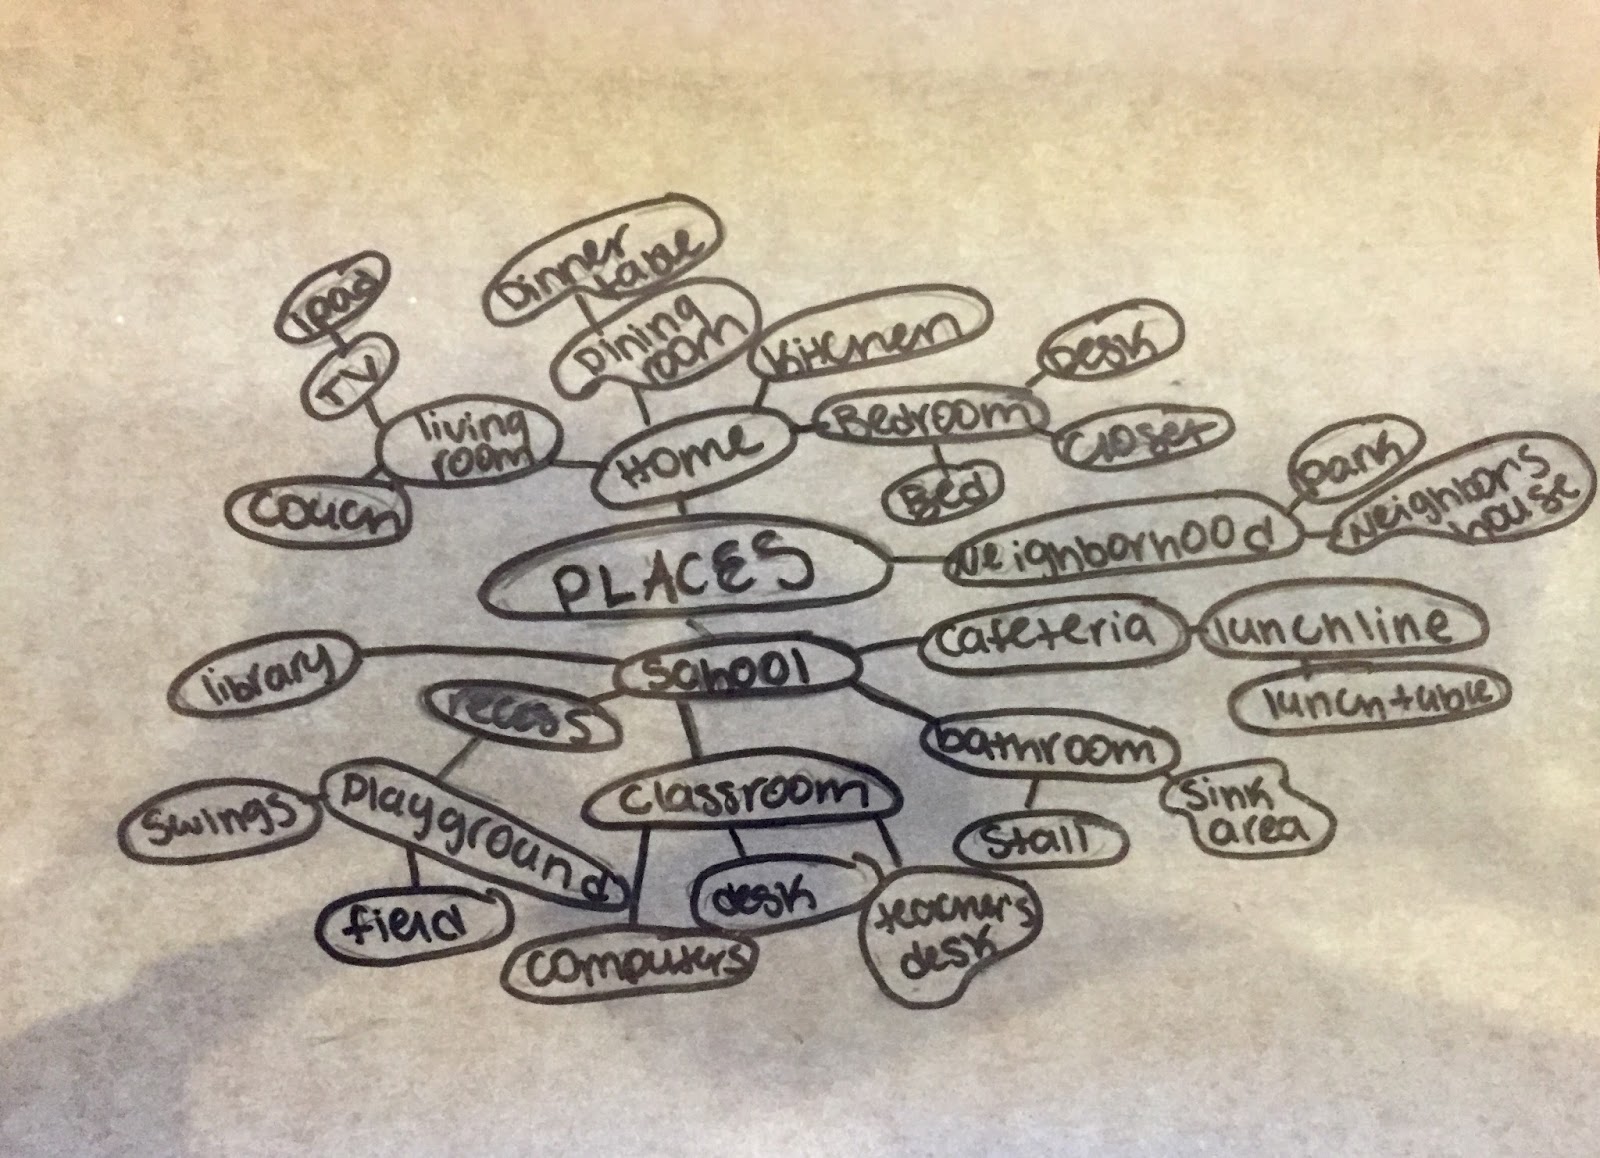 Dinner
table
ipad
Dining
room
Kitchen
Desk
TV
living
room
Home
Bedroom
Closet
Couch
Bed
park
Neighbors
house
Neighborhood
PLACES
cafeteria
lunchline
library
School
lunch table
recess
bathroom
Playground
classroom
sink
area
swings
stall
field
desk
teachers
desk
computers